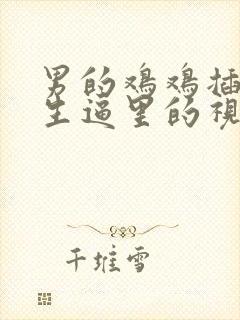 男的鸡鸡插
生逼里的视
千堆雪